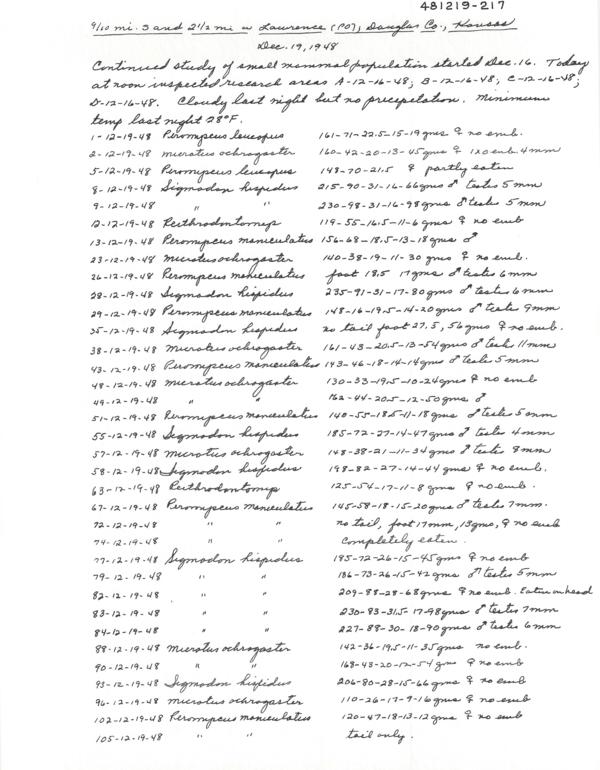 481219-217
9/10 mi. S and 2 1/2 mi W Lawrence (PO), Douglas Co., Kansas
Dec. 19, 1948
Continued study of small mammal population started Dec. 16. Today
at noon inspected research areas A-12-16-48; B-12-16-48; C-12-16-48;
D-12-16-48. Cloudy last night but no precipitation. Minimum
temp last night 28°F.
1-12-19-48 Peromyscus leucopus 161-71-22.5-15-19 gms ♀ no emb.
2-12-19-48 Microtus ochrogaster 160-42-20-13-45 gms ♀ 1x0 emb. 4mm
5-12-19-48 Peromyscus leucopus 148-70-21.5 ♀ partly eaten
8-12-19-48 Sigmodon hispidus 215-90-31-16-66 gms ♂ testes 5 mm
9-12-19-48 " " 230-98-31-16-98 gms ♂ testes 5 mm
12-12-19-48 Reithrodontomys 119-55-16.5-11-6 gms ♀ no emb
13-12-19-48 Peromyscus maniculatus 156-68-18.5-13-18 gms ♂
23-12-19-48 Microtus ochrogaster 140-38-19-11-30 gms ♀ no emb.
26-12-19-48 Peromyscus maniculatus foot 18.5 17 gms ♂ testes 6 mm
28-12-19-48 Sigmodon hispidus 235-91-31-17-80 gms ♂ testes 6 mm
29-12-19-48 Peromyscus maniculatus 148-16-19.5-14-20 gms ♂ testes 9mm
35-12-19-48 Sigmodon hispidus no tail foot 27.5, 56 gms ♀ no emb.
38-12-19-48 Microtus ochrogaster 161-43-20.5-13-54 gms ♂ testes 11mm
43-12-19-48 Peromyscus maniculatus 143-46-18-14-14 gms ♂ testes 5 mm
48-12-19-48 Microtus ochrogaster 130-33-19.5-10-24 gms ♀ no emb
49-12-19-48 " " 162-44-20.5-12-50 gms ♂
51-12-19-48 Peromyscus maniculatus 140-55-18.5-11-18 gms ♂ testes 5 mm
55-12-19-48 Sigmodon hispidus 185-72-27-14-47 gms ♂ testes 4 mm
57-12-19-48 Microtus ochrogaster 148-38-21-11-34 gms ♂ testes 8 mm
58-12-19-48 Sigmodon hispidus 198-82-27-14-44 gms ♀ no emb.
63-12-19-48 Reithrodontomys 125-54-17-11-8 gms ♀ no emb.
67-12-19-48 Peromyscus maniculatus 145-58-18-15-20 gms ♂ testes 7mm.
72-12-19-48 " " no tail, foot 17 mm, 13 gms, ♀ no emb
74-12-19-48 " " completely eaten.
77-12-19-48 Sigmodon hispidus 185-72-26-15-45 gms ♀ no emb
79-12-19-48 " " 186-73-26-15-42 gms ♂ testes 5 mm
82-12-19-48 " " 209-88-28-68 gms ♀ no emb. Eaten on head
83-12-19-48 " " 230-93-31.5-17-98 gms ♂ testes 7 mm
84-12-19-48 " " 227-88-30-18-90 gms ♂ testes 6 mm
88-12-19-48 Microtus ochrogaster 142-36-19.5-11-35 gms no emb.
90-12-19-48 " " 168-43-20-12-54 gms ♀ no emb
93-12-19-48 Sigmodon hispidus 206-80-28-15-66 gms ♀ no emb
96-12-19-48 Microtus ochrogaster 110-26-17-9-16 gms ♀ no emb
102-12-19-48 Peromyscus maniculatus 120-47-18-13-12 gms ♀ no emb
105-12-19-48 " " tail only.